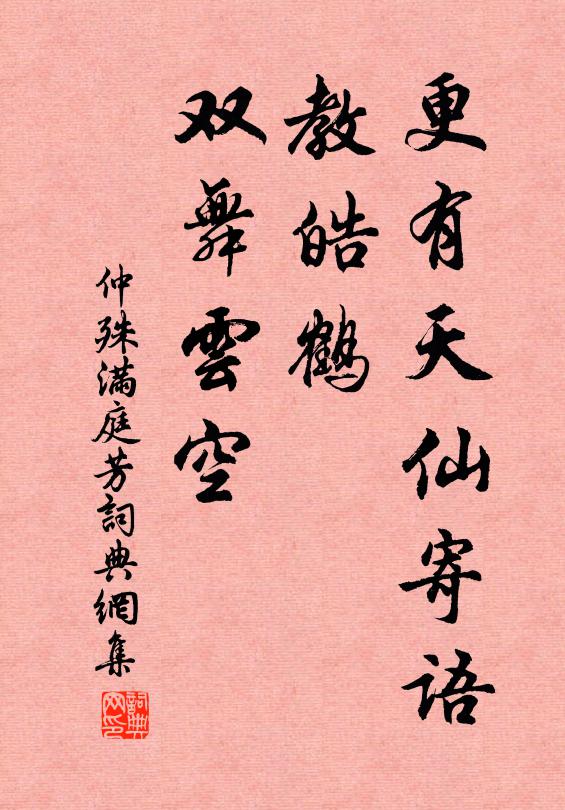 更有天仙寄语
教皓鹤
双舞雲空
仲殊满庭芳詞典網集
詞典网印